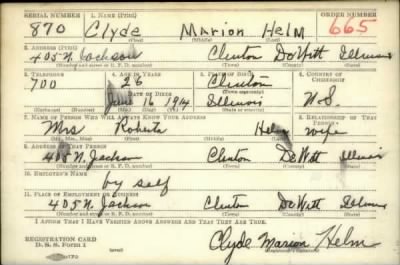 SERIAL NUMBER 1. NAME (Print) ORDER NUMBER
870 Clyde Marion Helm 665
(First) (Middle) (Last)
2. ADDRESS (Print)
405 N. Jackson Clinton DeWitt Illinois
(Number and street or R. F. D. number) (Town) (County) (State)
3. TELEPHONE 4. AGE IN YEARS 5. PLACE OF BIRTH 6. COUNTRY OF CITIZENSHIP
700 26 Clinton
DATE OF BIRTH (Town or county)
June 16 1914 Illinois U.S.
(Mo.) (Day) (Yr.) (State or country)
7. NAME OF PERSON WHO WILL ALWAYS KNOW YOUR ADDRESS 8. RELATIONSHIP OF THAT PERSON
Mrs Roberta Helm wife
(Mr., Mrs., Miss) (First) (Middle) (Last)
9. ADDRESS OF THAT PERSON
405 N. Jackson Clinton DeWitt Illinois
(Number and street or R. F. D. number) (Town) (County) (State)
10. EMPLOYER'S NAME
by self
11. PLACE OF EMPLOYMENT OR BUSINESS
405 N. Jackson Clinton DeWitt Illinois
(Number and street or R. F. D. number) (Town) (County) (State)
I AFFIRM THAT I HAVE VERIFIED ABOVE ANSWERS AND THAT THEY ARE TRUE.
REGISTRATION CARD
D. S. S. FORM 1
Clyde Marion Helm
(Registrant's signature)